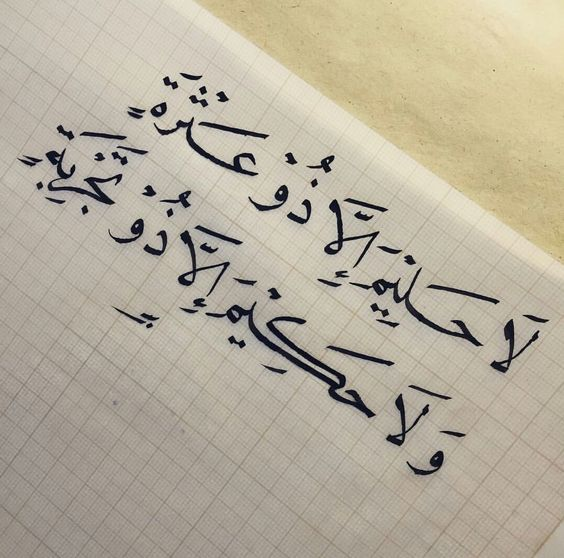 لَا حَلِيْمَ إِلَّا ذُوْ عَثْرَةٍ
وَلَا حَكِيْمَ إِلَّا ذُوْ تَجْرِبَةٍ